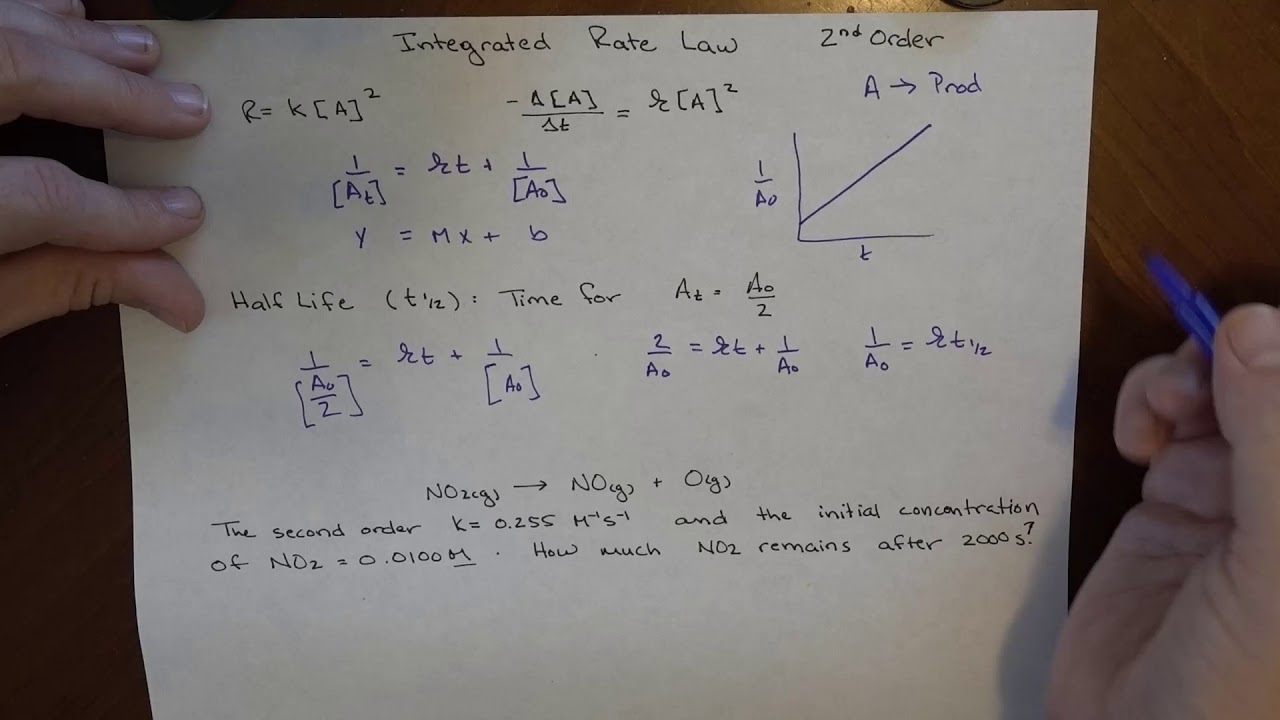 Integrated Rate Law 2nd Order
R = K[A]²
-Δ[A]/Δt = k[A]²
A → Prod
1/[At] = kt + 1/[A0]
Y = Mx + b
1/A0
t
Half Life (t1/2): Time for At = A0/2
1/[A0/2] = kt + 1/[A0]
2/A0 = kt + 1/A0
1/A0 = kt1/2
NO2(g) → NO(g) + O(g)
The second order K = 0.255 M⁻¹s⁻¹ and the initial concentration
of NO2 = 0.0100 M. How much NO2 remains after 2000s?